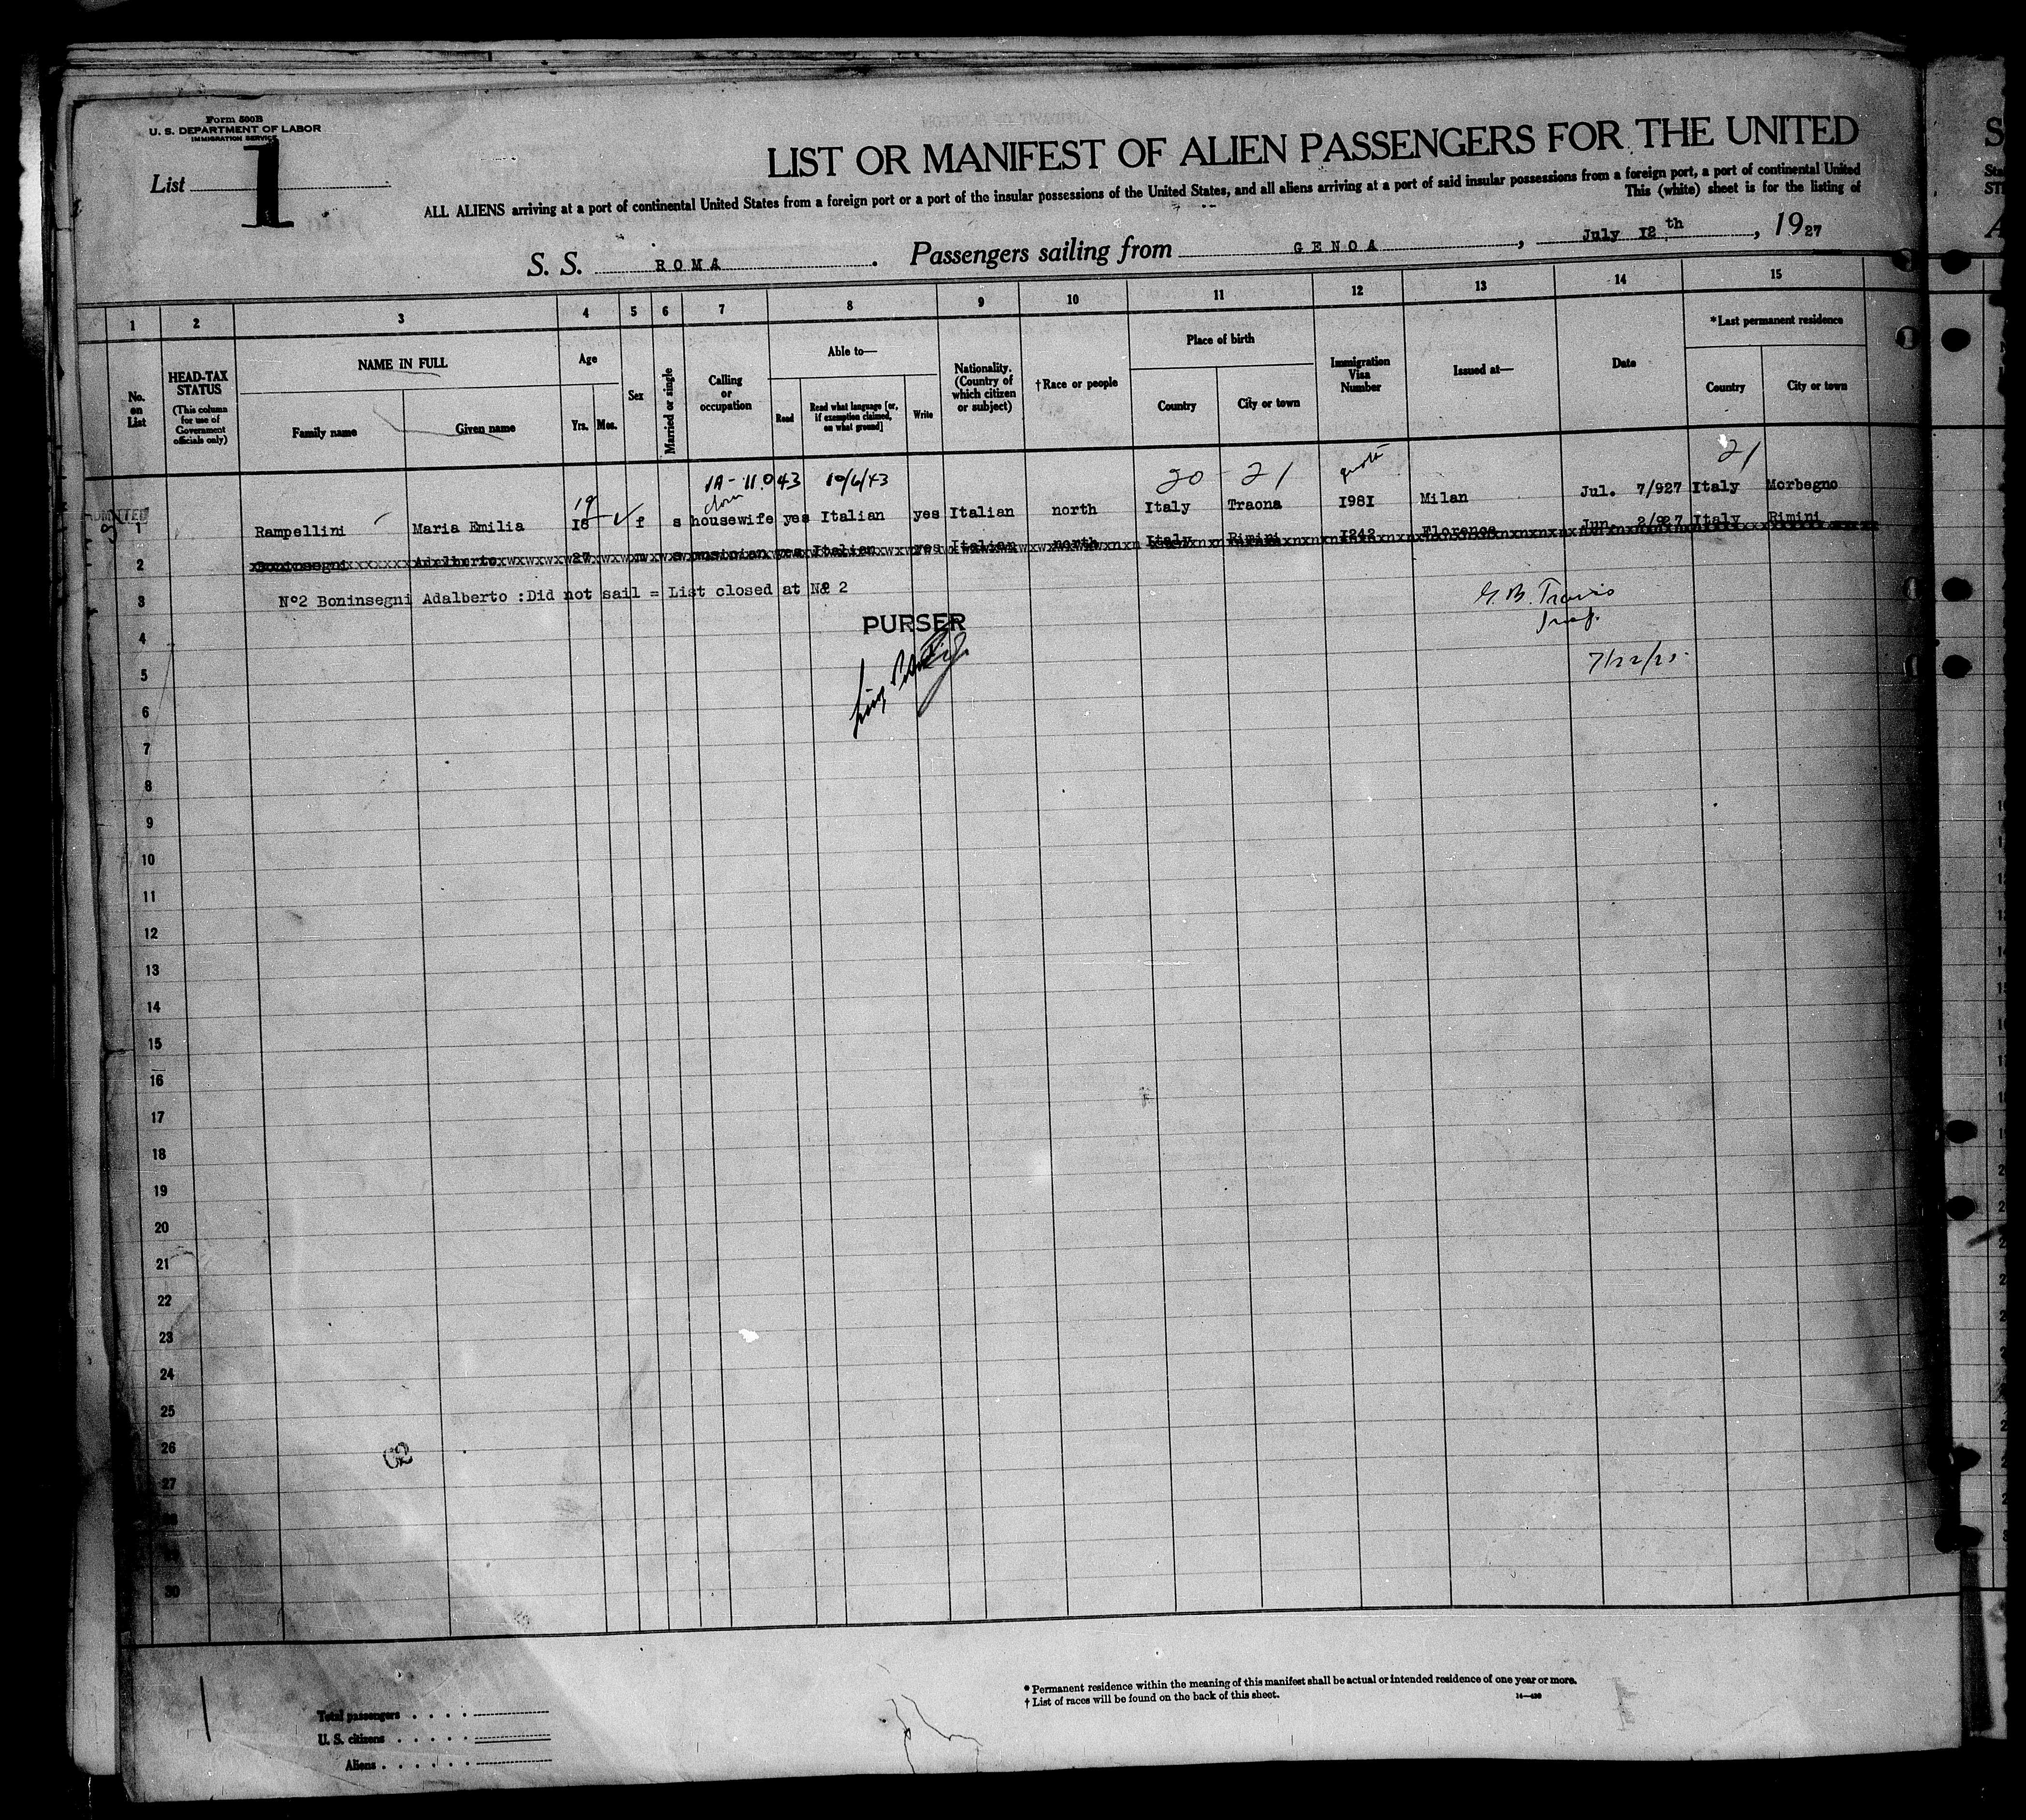 Form 500B
U. S. DEPARTMENT OF LABOR
IMMIGRATION SERVICE
List 1
LIST OR MANIFEST OF ALIEN PASSENGERS FOR THE UNITED
ALL ALIENS arriving at a port of continental United States from a foreign port or a port of the insular possessions of the United States, and all aliens arriving at a port of said insular possessions from a foreign port, a port of continental United
This (white) sheet is for the listing of
S. S. ROMA. Passengers sailing from GENOA, July 12th, 1927
1 2 3 4 5 6 7 8 9 10 11 12 13 14 15
No. on List
HEAD-TAX STATUS
(This column for use of Government officials only)
NAME IN FULL
Family name
Given name
Age
Yrs.
Mos.
Sex
Married or single
Calling or occupation
Able to—
Read
Read what language [or, if exemption claimed, on what ground]
Write
Nationality. (Country of which citizen or subject)
†Race or people
Place of birth
Country
City or town
Immigration Visa Number
Issued at—
Date
*Last permanent residence
Country
City or town
10/6/43 20 21 21
19
ADMITTED
1 Rampellini Maria Emilia 18 f s housewife yes Italian yes Italian north Italy Traona I98I Milan Jul. 7/927 Italy Morbegno
2 Boninsegni Adalberto 27 m s yes Italian yes Italian north Italy Rimini I242 Florence Jun. 2/927 Italy Rimini
3 Nº2 Boninsegni Adalberto :Did not sail = List closed at Nº 2
PURSER
4
5
6
7
8
9
10
11
12
13
14
15
16
17
18
19
20
21
22
23
24
25
26
27
30
* Permanent residence within the meaning of this manifest shall be actual or intended residence of one year or more.
† List of races will be found on the back of this sheet.
Total passengers
U. S. citizens
Aliens